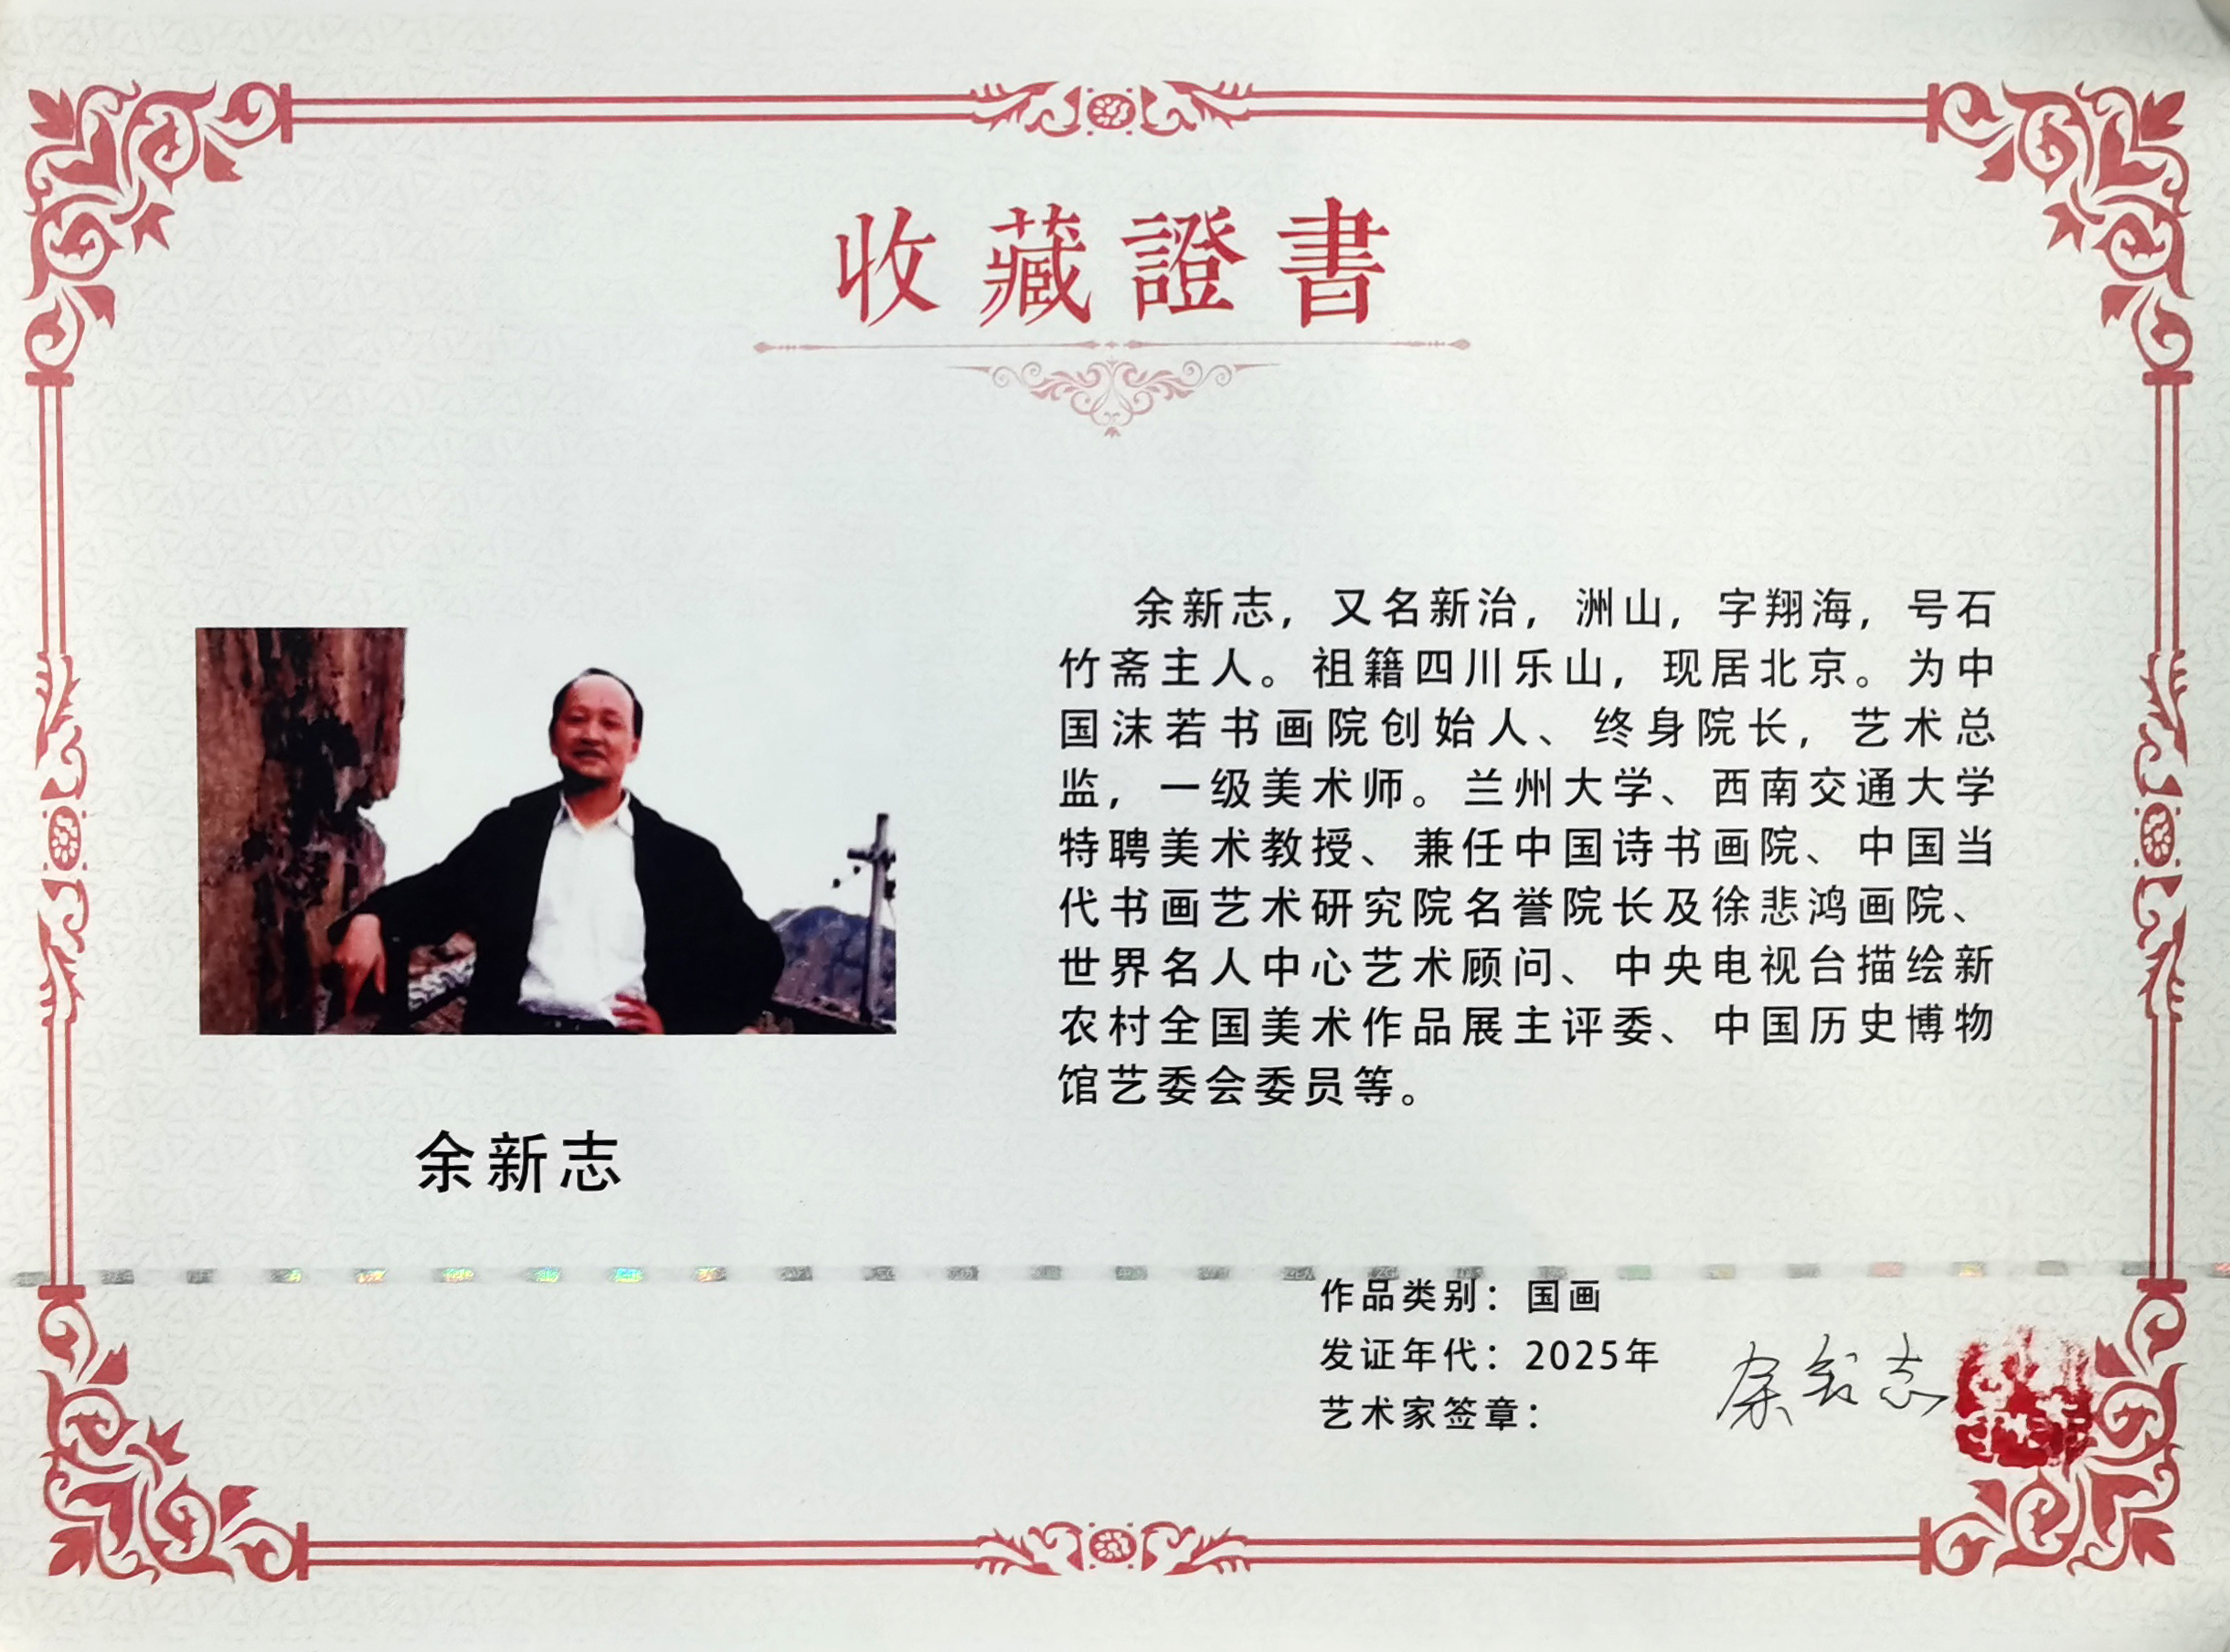 收藏證書
余新志，又名新治，洲山，字翔海，号石
竹斋主人。祖籍四川乐山，现居北京。为中
国沫若书画院创始人、终身院长，艺术总
监，一级美术师。兰州大学、西南交通大学
特聘美术教授、兼任中国诗书画院、中国当
代书画艺术研究院名誉院长及徐悲鸿画院、
世界名人中心艺术顾问、中央电视台描绘新
农村全国美术作品展主评委、中国历史博物
馆艺委会委员等。
余新志
作品类别：国画
发证年代：2025年
艺术家签章：
余新志